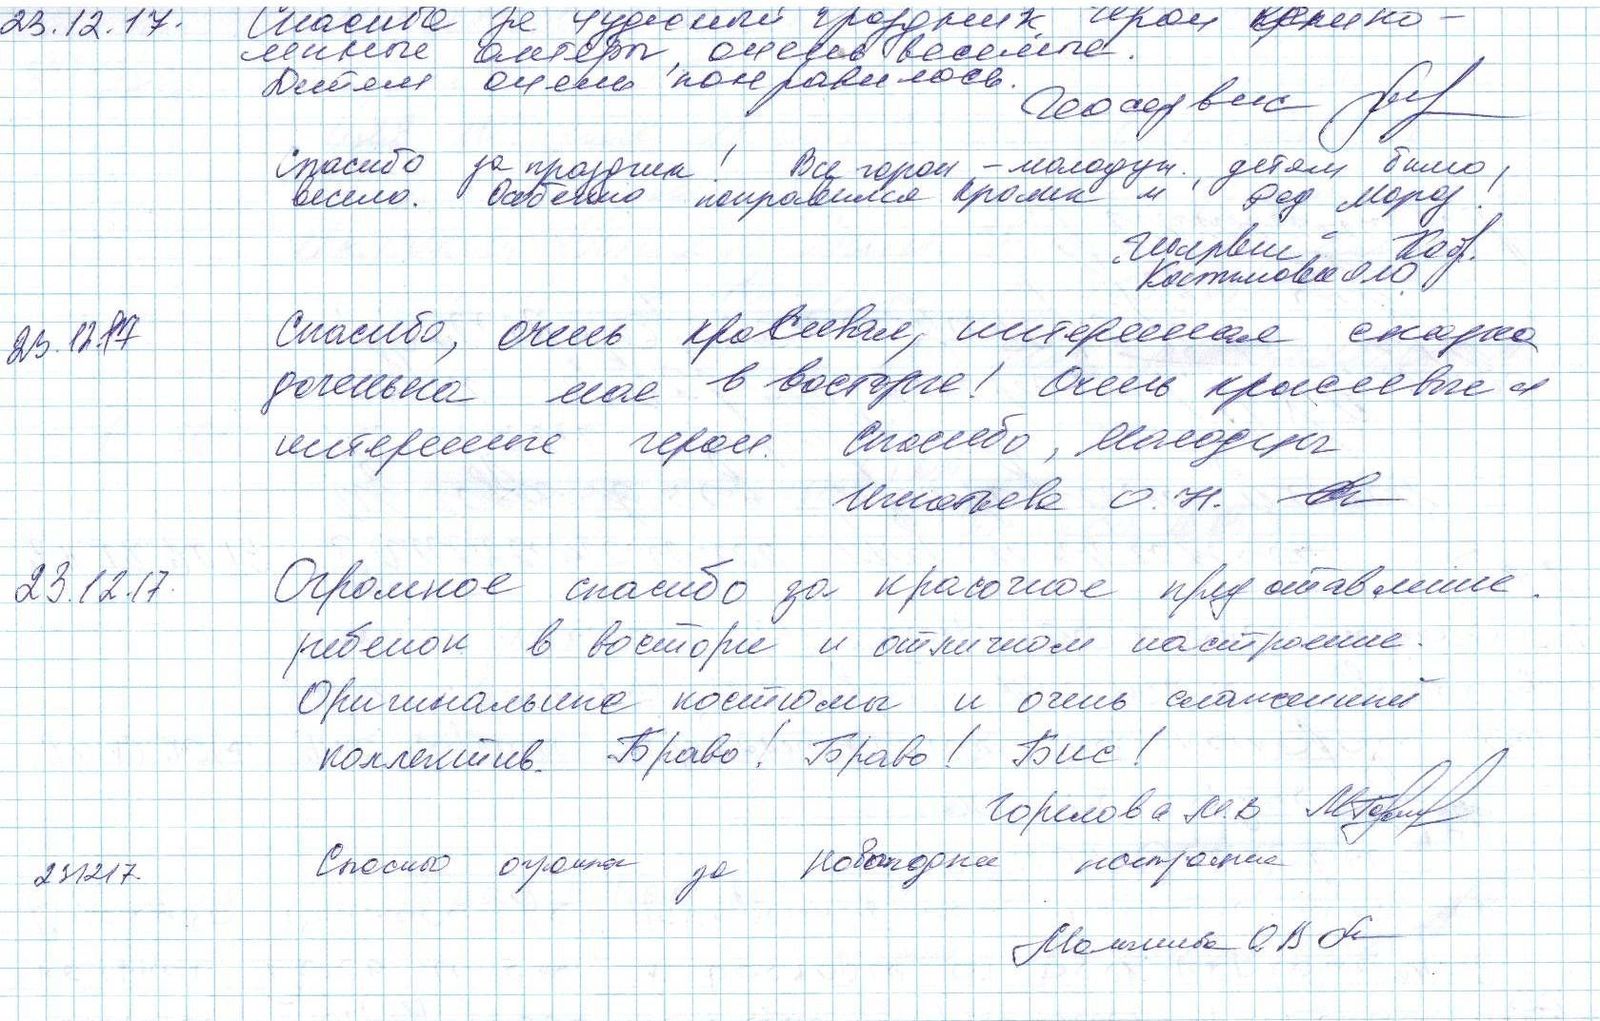 23.12.17. Спасибо за чудесный праздник, герои
очень веселые.
Детям очень понравилось.
Геосервис
Спасибо за праздник! Все герои - молодцы, детям было
весело. Особенно понравился Кролик и Дед Мороз!
23.12.17 Спасибо, очень красивая, интересная сказка
доченька моя в восторге! Очень красивые и
интересные герои. Спасибо, молодцы
Игнатьева О.Н.
23.12.17. Огромное спасибо за красочное представление.
ребенок в восторге и отличном настроение.
Оригинальные костюмы и очень слаженный
коллектив. Браво! Браво! Бис!
Горелова М.В
231217. Спасибо огромное за новогоднее настроение
О В